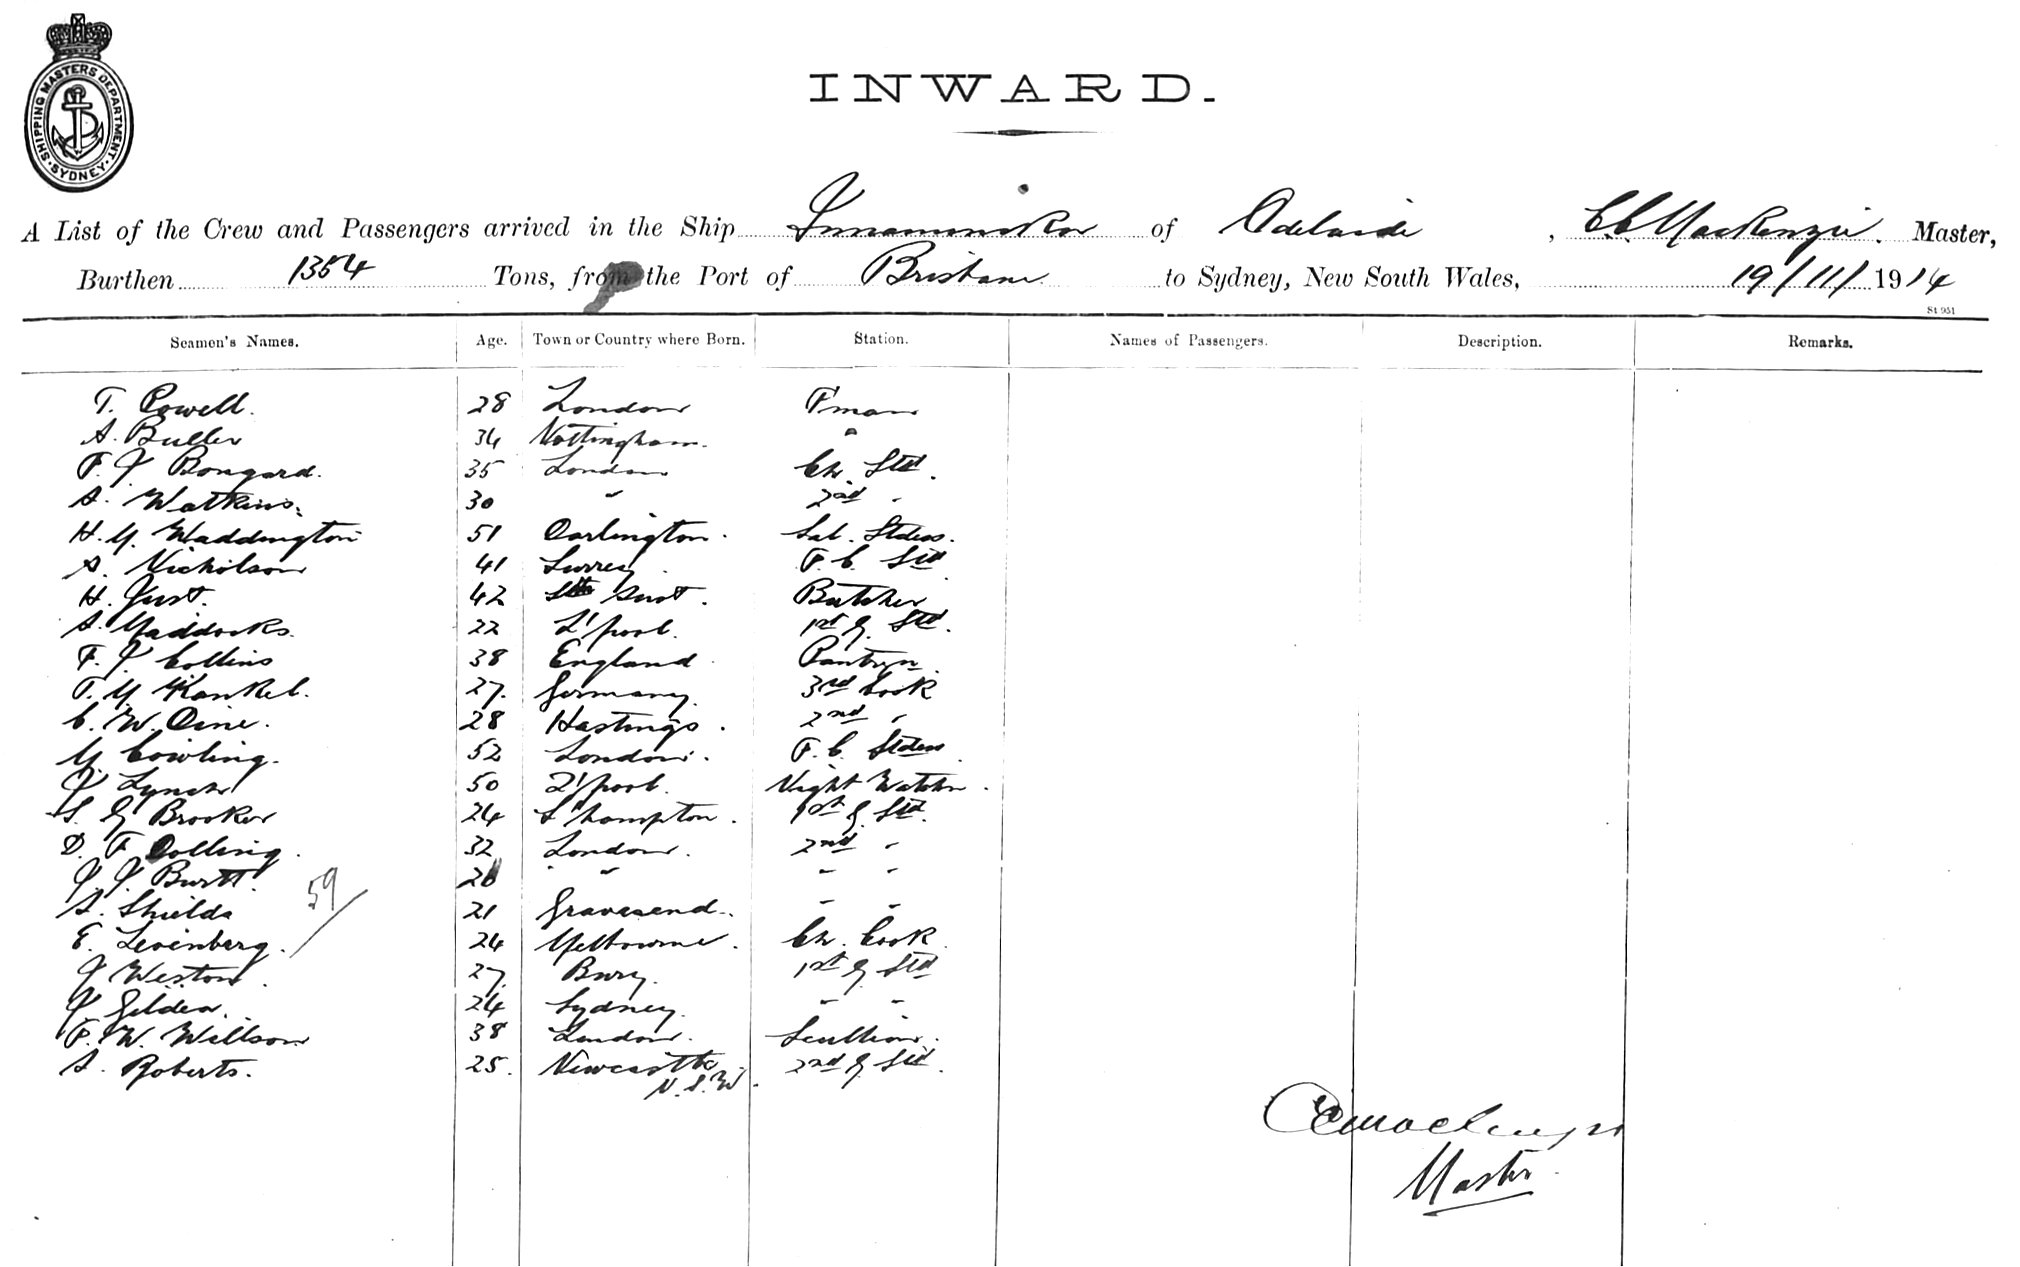 SHIPPING MASTERS DEPARTMENT. SYDNEY
INWARD.
A List of the Crew and Passengers arrived in the Ship Innamincka of Adelaide, C.C. Mackenzie. Master,
Burthen 1354 Tons, from the Port of Brisbane to Sydney, New South Wales, 19/11/1914
St 951
Seamen's Names. Age. Town or Country where Born. Station. Names of Passengers. Description. Remarks.
T. Powell. 28 London F'man
A. Buller 34 Nottingham. "
F. J Bongard. 35 London Ch. Std.
A. Watkins. 30 " 2nd "
H. M. Waddington 51 Darlington. Sal. Stdess.
A. Nicholson 41 Surrey. F. C. Std
H. Just. 42 Butcher
A. Maddocks. 22 L'pool. 1st G. Std.
F. J. Collins 38 England Pantryn.
T. M. Kankel. 27. Germany. 3rd Cook
C. W. Dine. 28 Hastings. 2nd "
M. Cowling. 52 London. F. C. Stdess
J. Lynch 50 L'pool. Night Watchn.
S. G Brooker 24 S'hampton. 1st G. Std.
D. F Colling. 32 London. 2nd "
J. J. Burtt. " " "
A. Shields 21 Gravesend. " "
59/
E. Levenberg. 24 Melbourne. Ch. Cook.
J Weston. 27. Bury. 1st G Std
J. Gilden. 24 Sydney. " "
F. W. Willson 38 London. Scullion.
A. Roberts. 25. Newcastle 2nd G. Std.
N.S.W.
CC Mackenzie
Master.